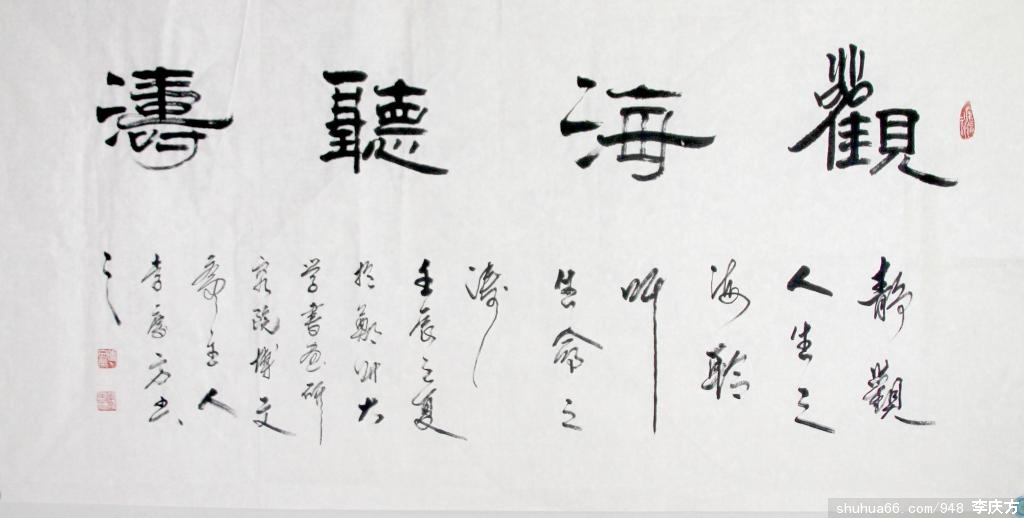 觀海聽濤
静觀
人生之
海聆
听
生命之
濤
壬辰之夏
於鄭州大
学書画研
究院博文
斋主人
李慶方书
之
shuhua66.com/948 李庆方